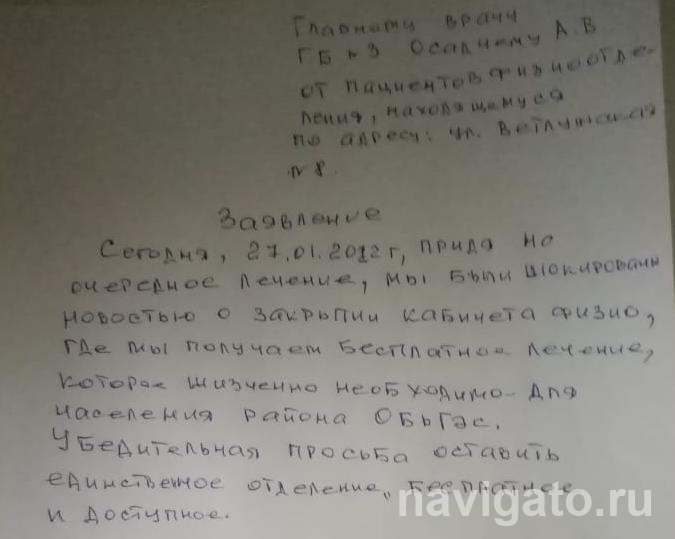 Главному врачу
ГБ №3 Осадчему А.В
от пациентов физиоотде-
ления, находящемуся
по адресу: ул. Ветлужская
№ 8.
Заявление
Сегодня, 27.01.2012г, придя на
очередное лечение, мы были шокированы
новостью о закрытии кабинета физио,
где мы получаем бесплатное лечение,
которое жизненно необходимо для
населения района ОбьГэс.
Убедительная просьба оставить
единственное отделение, бесплатное
и доступное.
navigato.ru